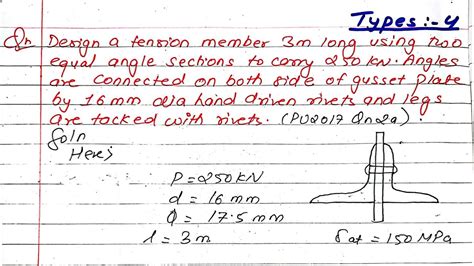 Types:- 4
Qn Design a tension member 3m long using two
equal angle sections to carry 250 kN. Angles
are connected on both side of gusset plate
by 16mm dia hand driven rivets and legs
are tacked with rivets. (PU2017 Qn2a).
Soln
Here;
P = 250KN
d = 16 mm
Φ = 17.5 mm
l = 3m
σat = 150 MPa